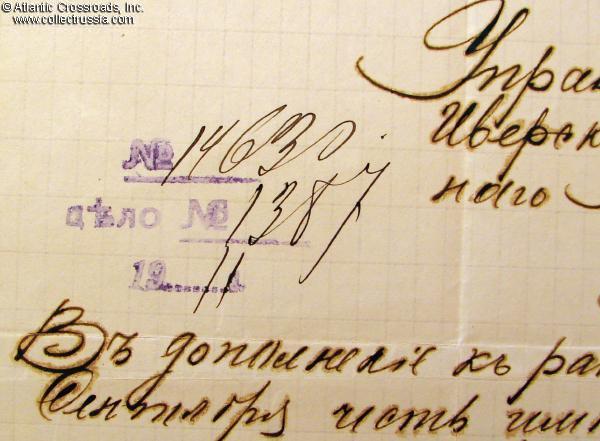 © Atlantic Crossroads, Inc.
www.collectrussia.com
Упра
Иверск
наго
№ 14630.
дѣло № 1387
1911
Въ дополненіе къ ра
Сентября честь имѣ